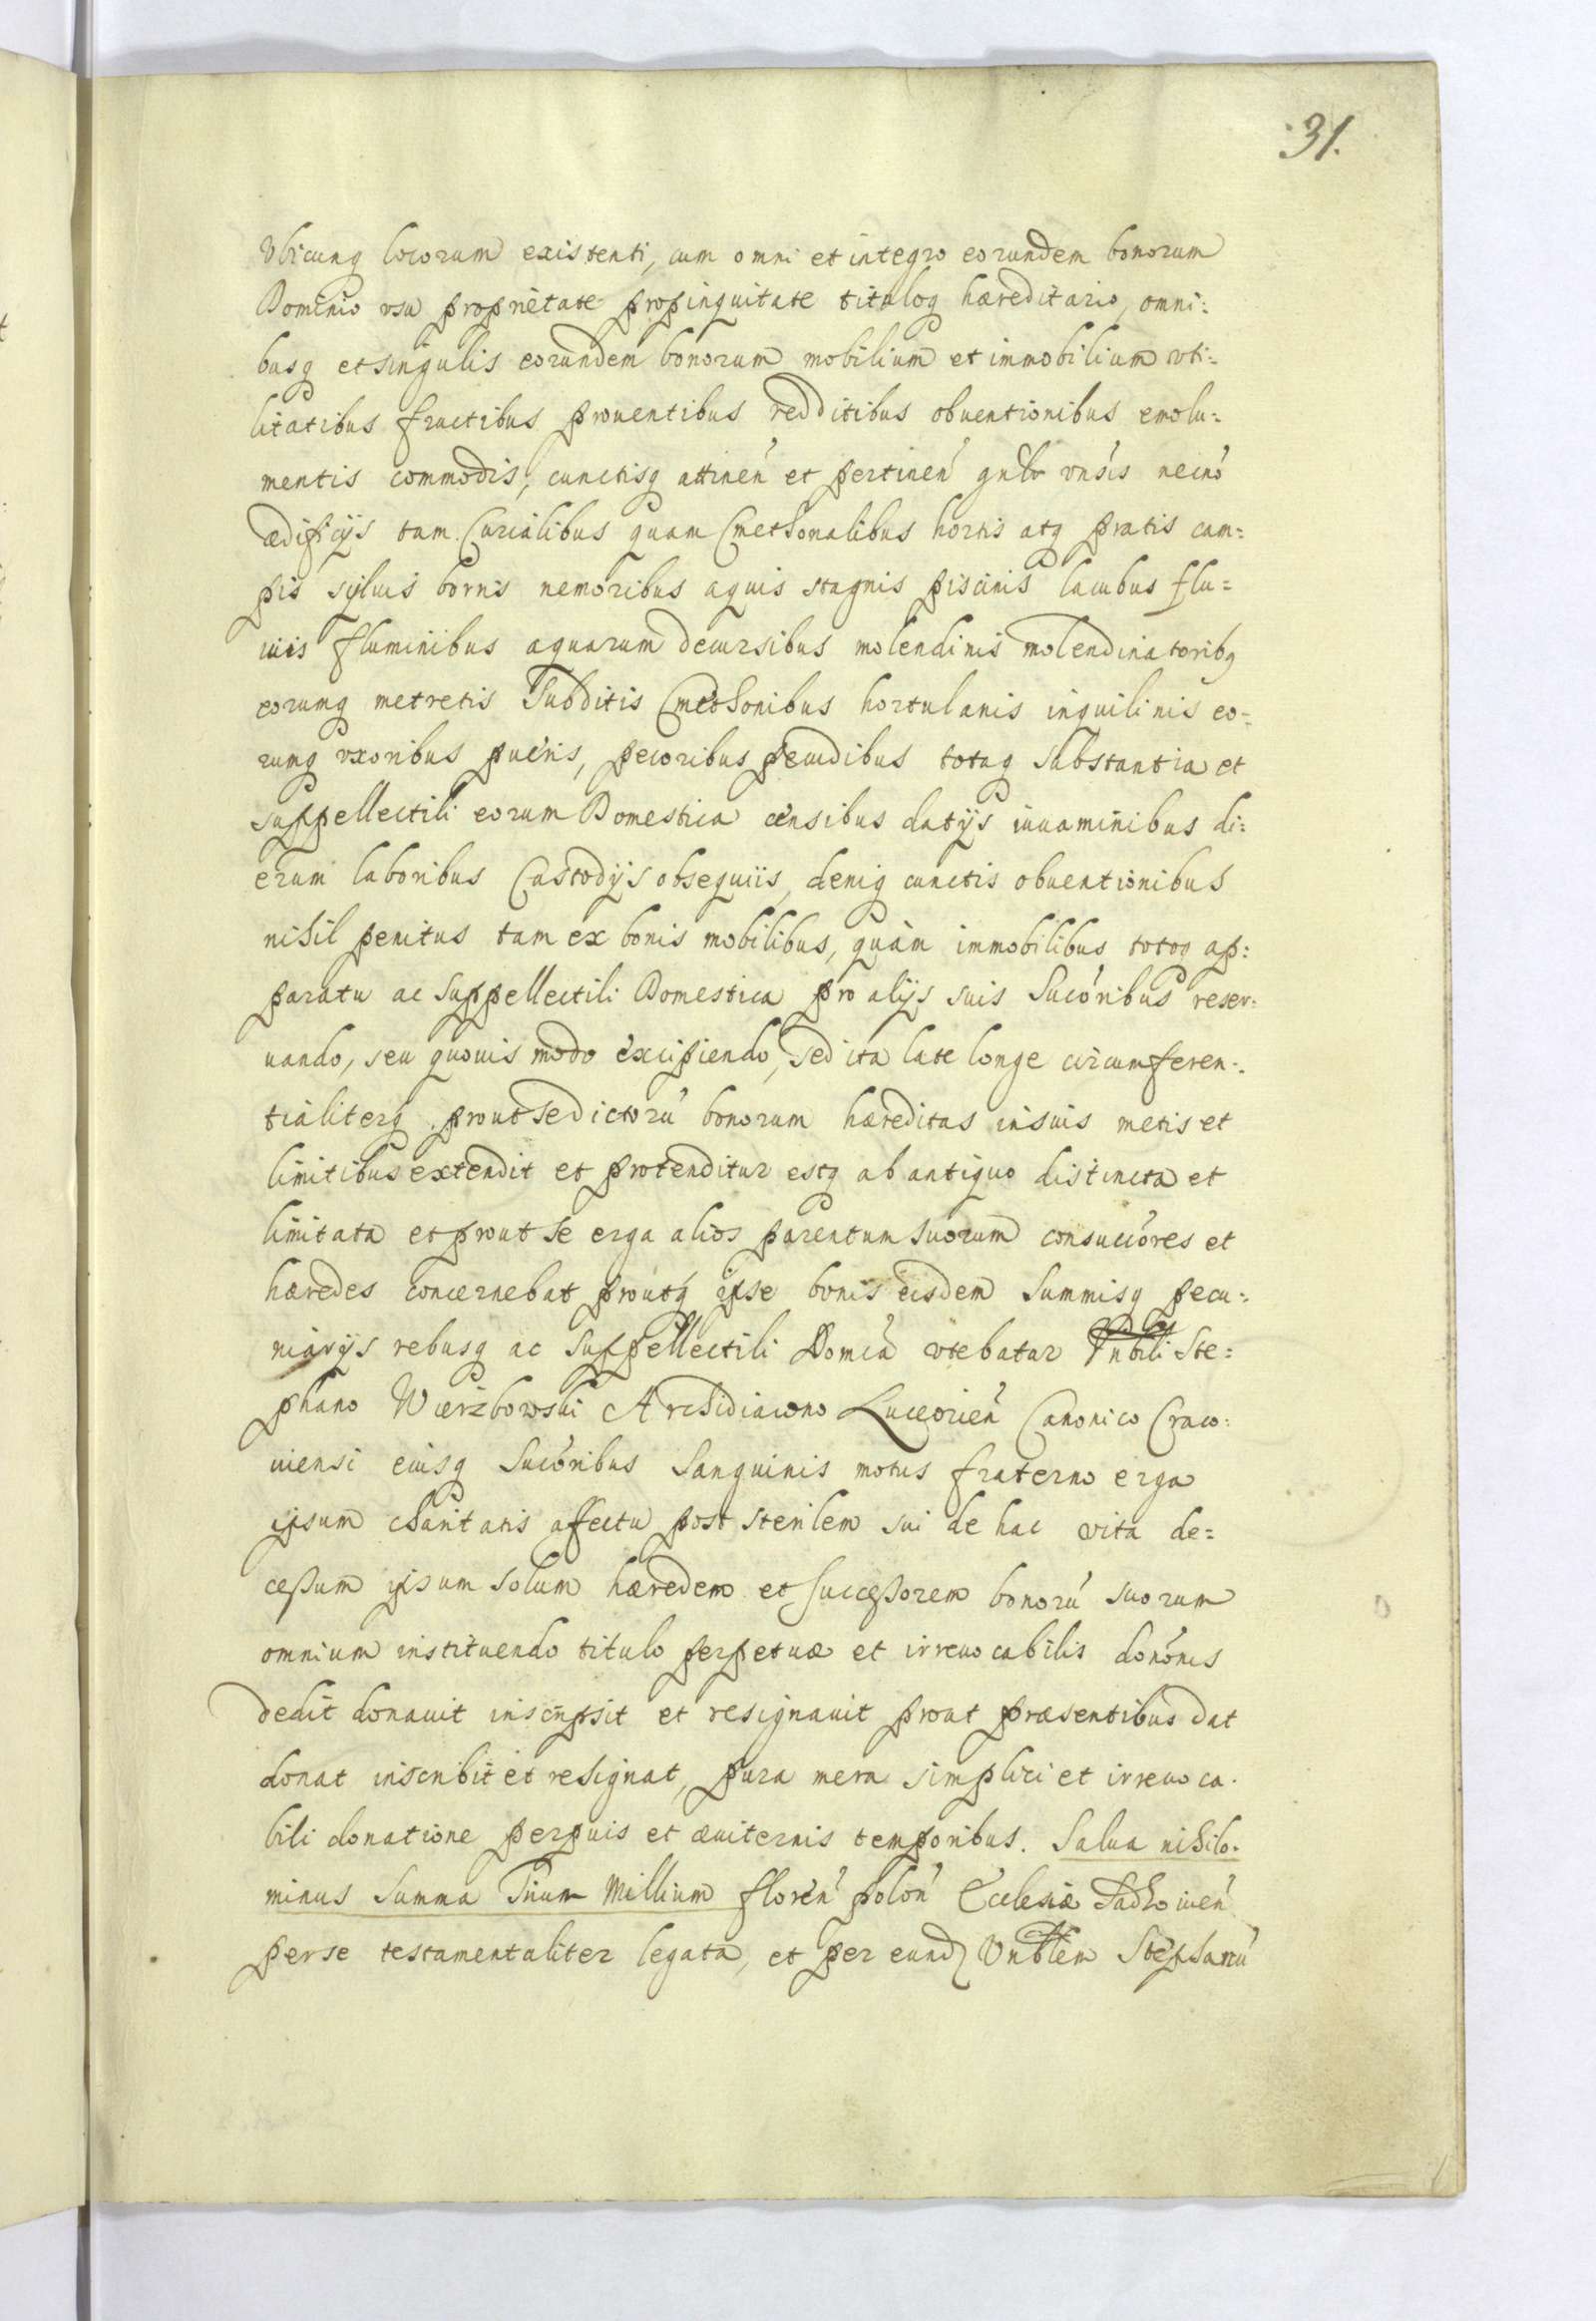 31.
Vbicunq locorum existenti, cum omni et integro eorundem bonorum
Dominio vsu proprietate propinquitate tituloq hæreditario, omni:
busq et singulis eorundem bonorum mobilium et immobilium vti:
litatibus fructibus prouentibus redditibus obuentionibus emolu:
mentis commodis, cunctisq attinen̄ et pertinen̄ gnl̄r vnśis necnō
ædificijs tam Curialibus quam Cmethonalibus hortis atq pratis cam:
pis syluis borris nemoribus aquis stagnis piscinis lacubus flu=
uiis fluminibus aquarum decursibus molendinis molendinatoribq
eorumq metretis Subditis Cmethonibus hortulanis inquilinis eo=
rumq vxoribus pueris, pecoribus pecudibus totaq substantia et
suppellectili eorum Domestica censibus datijs iuuaminibus di:
erum laboribus Custodijs obsequiis, deniq cunctis obuentionibus
nihil penitus tam ex bonis mobilibus, quàm immobilibus totoq ap:
paratu ac suppellectili Domestica pro alijs suis Sucōribus reser:
uando, seu quouis modo excipiendo, sed ita late longe circumferen:
tialiterq prout se dictorū bonorum hæreditas in suis metis et
limitibus extendit et protenditur estq ab antiquo distincta et
limitata et prout se erga alios parentum suorum consucōres et
hæredes concernebat proutq ipse bonis eisdem summisq pecu:
niarijs rebusq ac suppellectili Domcā vtebatur Vnbili Ste:
phano Wierzbowski Archidiacono Luceorien̄ Canonico Craco:
uiensi eiusq Sucōribus Sanguinis motus fraterno erga
ipsum charitatis affectu post sterilem sui de hac vita de=
cessum ipsum solum hæredem et successorem bonorū suorum
omnium instituendo titulo perpetuæ et irreuocabilis donōnis
dedit donauit inscripsit et resignauit prout præsentibus dat
donat inscribit et resignat, pura mera simplici et irreuoca.
bili donatione perpuis et æuiternis temporibus. Salua nihilo.
minus Summa Trium Millium floren̄ polon̄ Ecclesiæ Sadkouien̄
per se testamentaliter legata, et per eund Vnblem Stephanū